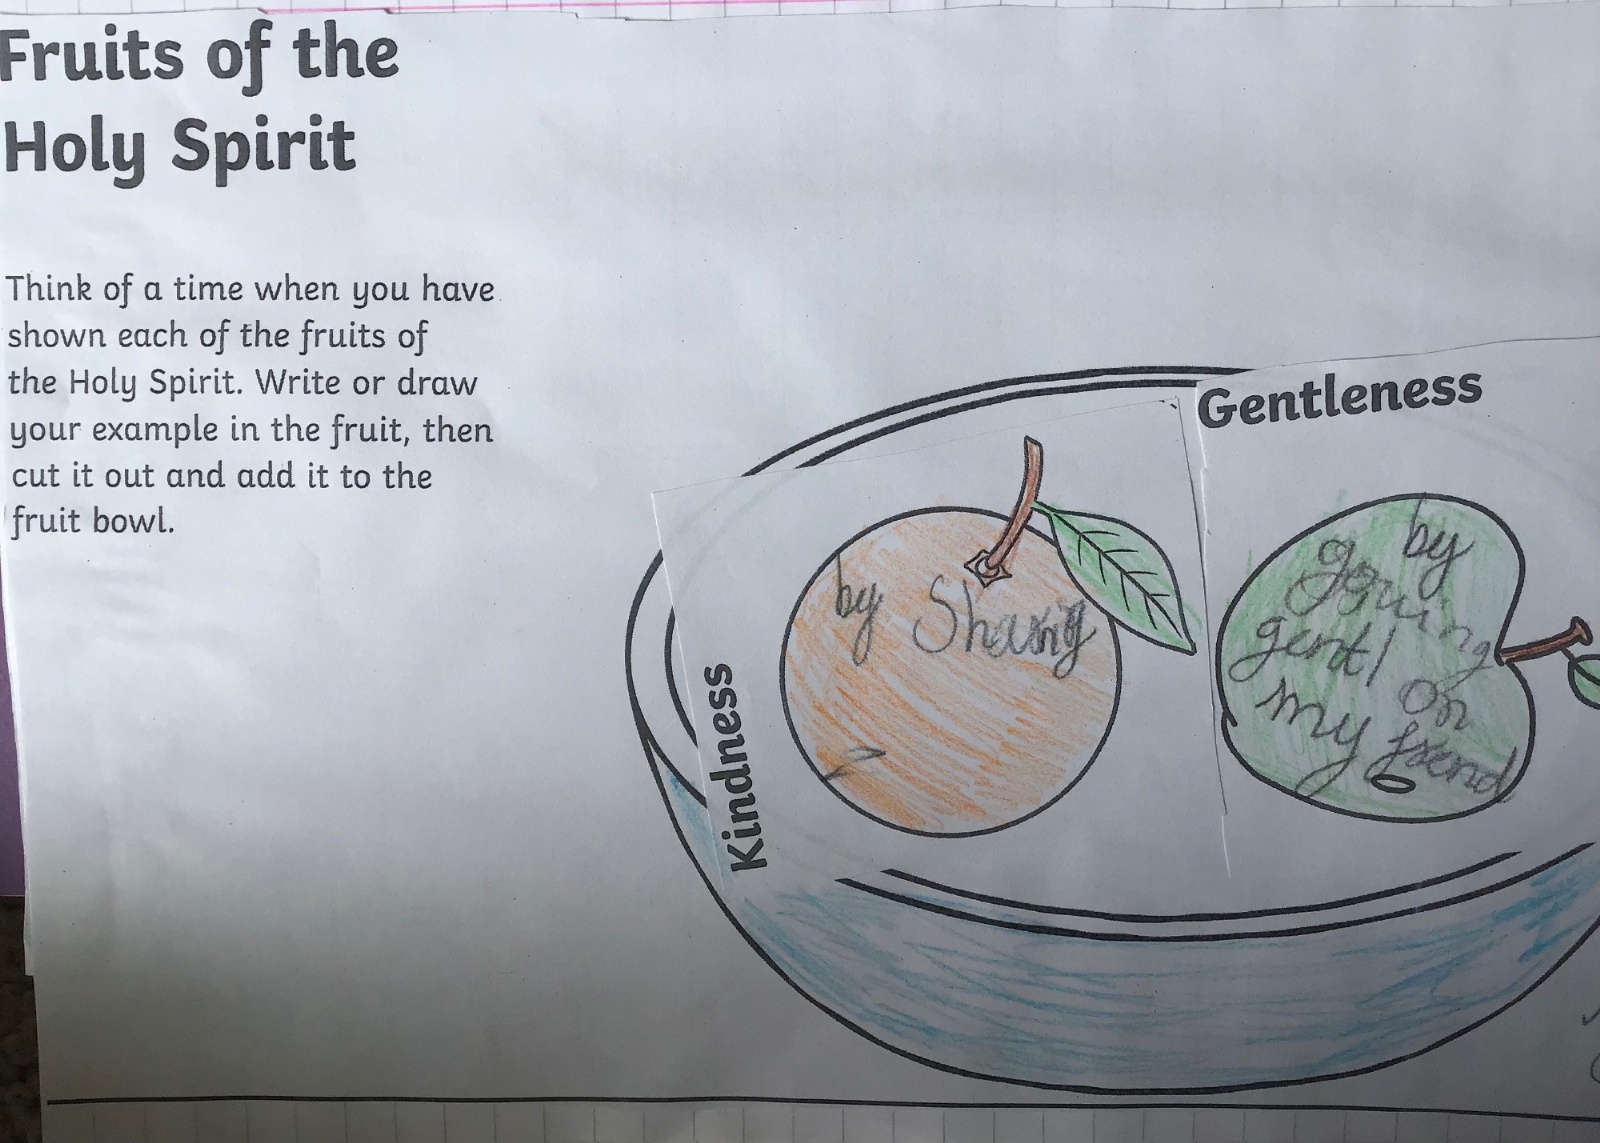 Fruits of the
Holy Spirit
Think of a time when you have
shown each of the fruits of
the Holy Spirit. Write or draw
your example in the fruit, then
cut it out and add it to the
fruit bowl.
Kindness
by Sharing
Gentleness
by
gentl on
my frend